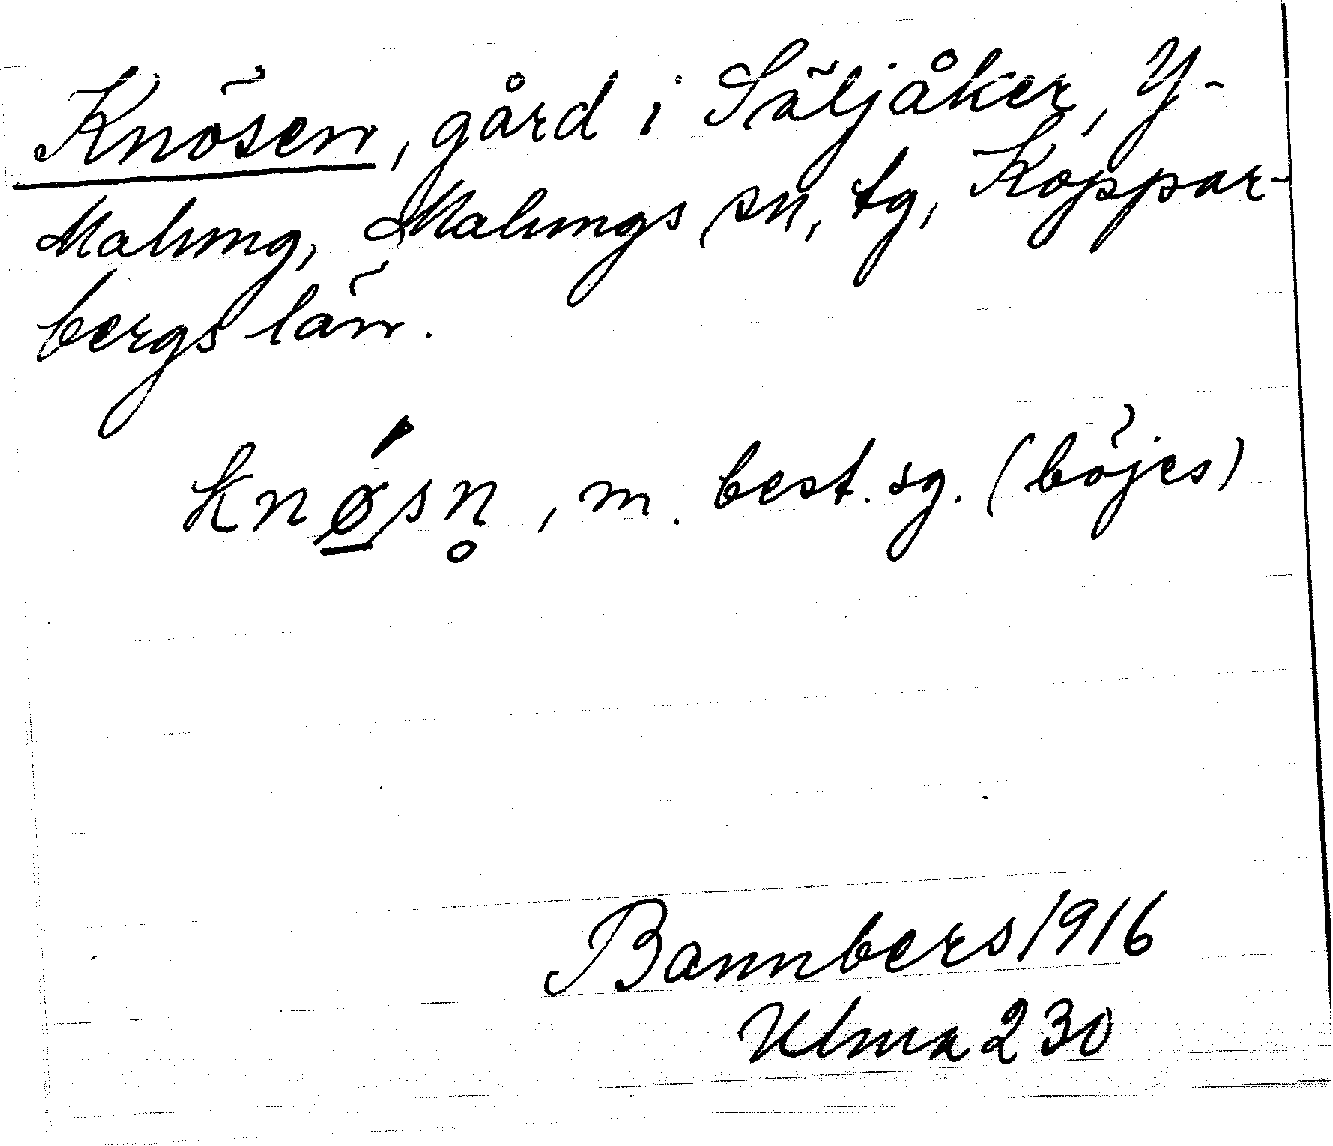 Knösen, gård i Säljåker, Y-
Malung, Malungs sn, tg, Koppar-
bergs län.
knǿ̱sn̥, m. best. sg. (böjes)
Bannbers 1916
Ulma 230